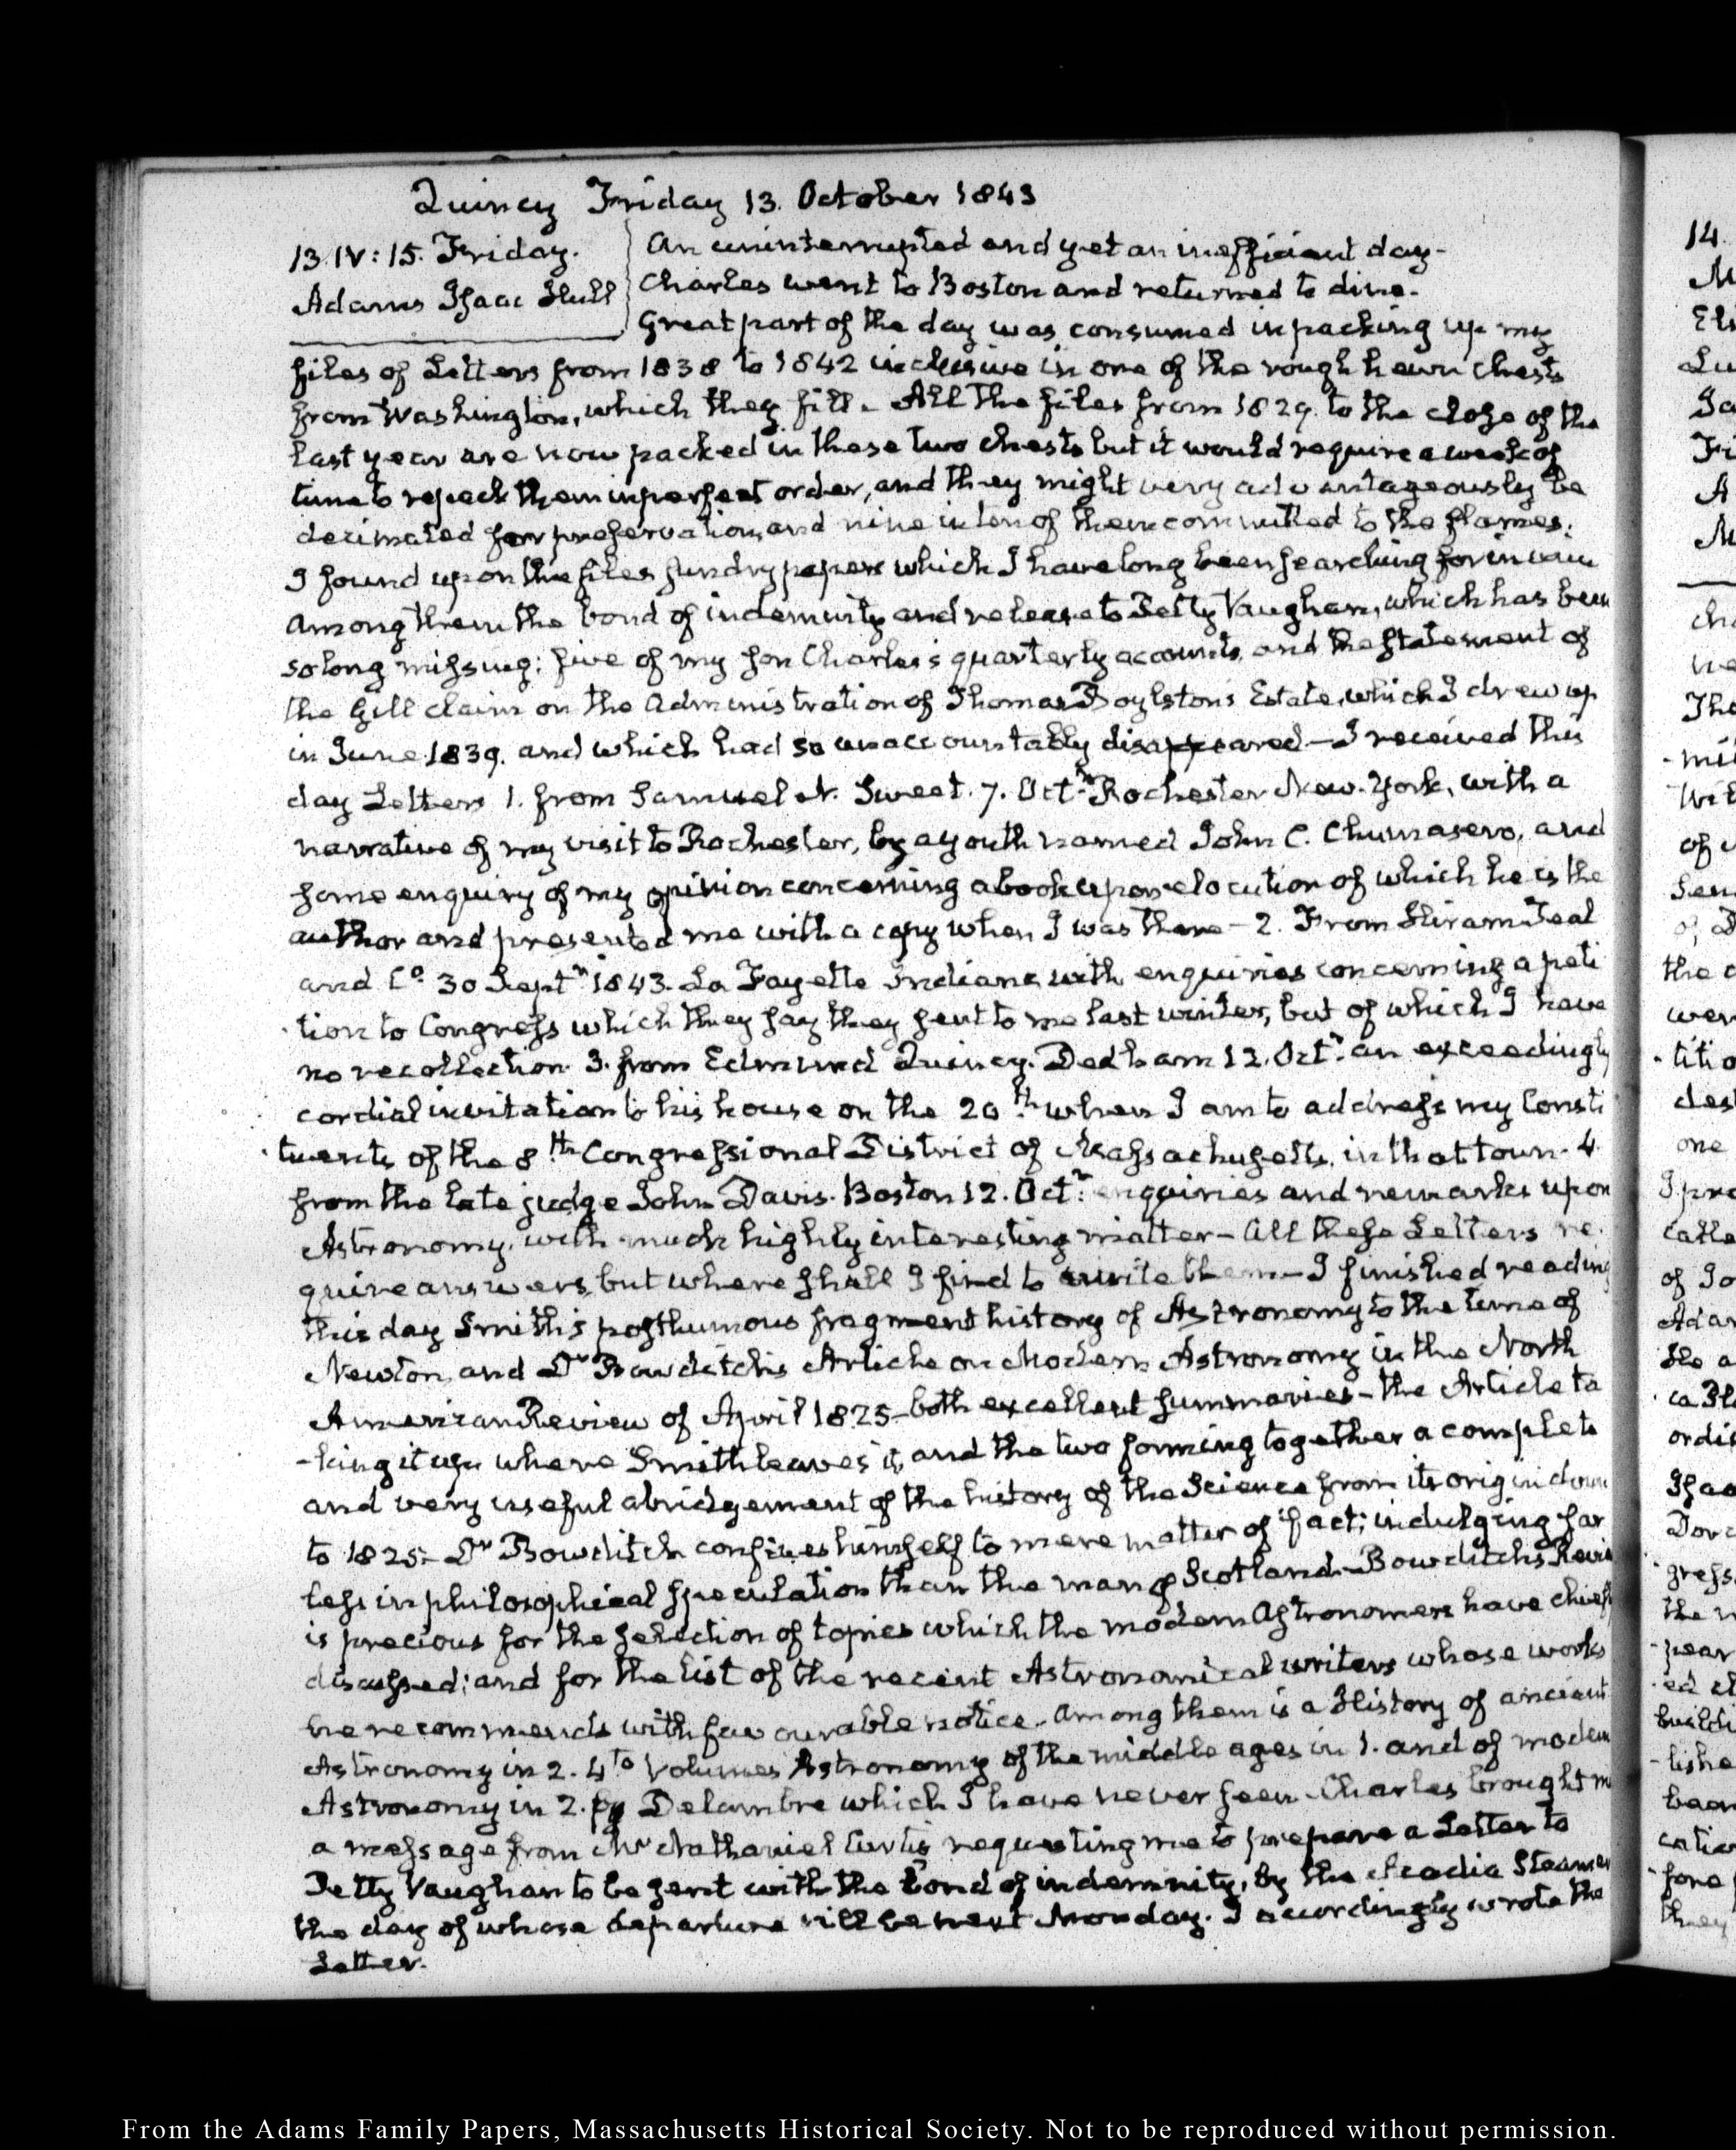 Quincy Friday 13. October 1843
13. IV: 15. Friday.
Adams Isaac Hull
An uninterrupted and yet an inefficient day-
Charles went to Boston and returned to dine.
Great part of the day was consumed in packing up my
files of Letters from 1838 to 1842 inclusive in one of the rough hewn chests
from Washington, which they fill. All the files from 1829. to the close of the
last year are now packed in these two chests but it would require a week of
time to repack them in perfect order, and they might very advantageously be
decimated for preservation, and nine in ten of them committed to the flames.
I found upon the files sundry papers which I have long been searching for in vain
among them the bond of indemnity and release to Petty Vaughan, which has been
so long missing: five of my son Charles's quarterly accounts, and the statement of
the Gill claim on the Administration of Thomas Boylston's Estate, which I drew up
in June 1839. and which had so unaccountably disappeared - I received this
day Letters 1. from Samuel N. Sweet. 7. Octr. Rochester New-York, with a
narrative of my visit to Rochester, by a youth named John C. Chumasero, and
some enquiry of my opinion concerning a book upon elocution of which he is the
author and presented me with a copy when I was there - 2. From Hiram Teal
and Co. 30 Septr. 1843. La Fayette Indiana, with enquiries concerning a peti
tion to Congress which they say they sent to me last winter, but of which I have
no recollection. 3. from Edmund Quincy. Dedham 12. Octr. an exceedingly
cordial invitation to his house on the 20th. when I am to address my Consti
tuents of the 8th. Congressional District of Massachusetts, in that town. 4
from the late judge John Davis. Boston 12. Octr. enquiries and remarks upon
Astronomy, with much highly interesting matter - All these Letters re-
quire answers, but where shall I find to write them - I finished reading
this day Smith's posthumous fragment history of Astronomy to the time of
Newton, and Dr. Bowditch's Article on Modern Astronomy in the North
American Review of April 1825 - both excellent summaries - the Article ta
-king it up where Smith leaves it, and the two forming together a complete
and very useful abridgement of the history of the Science from its origin down
to 1825 - Dr. Bowditch confines himself to mere matter of fact; indulging far
less in philosophical speculation than the man of Scotland - Bowditch's Revie
is precious for the selection of topics which the modern Astronomers have chiefly
discussed; and for the list of the recent Astronomical writers whose works
he recommends with favourable notice. Among them is a History of ancient
Astronomy in 2. 4to. Volumes Astronomy of the middle ages in 1. and of modern
Astronomy in 2. by Delambre which I have never seen - Charles brought me
a message from Mr. Nathaniel Curtis requesting me to prepare a Letter to
Petty Vaughan to be sent with the bond of indemnity, by the Acadia Steamer
the day of whose departure will be next Monday. I accordingly wrote the
Letter.
14.
From the Adams Family Papers, Massachusetts Historical Society. Not to be reproduced without permission.